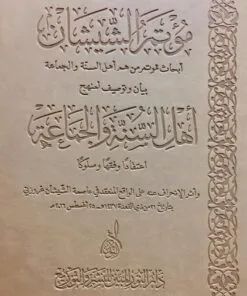 مؤتمر الشيشان
أبحاث مؤتمر من هم أهل السنة والجماعة
بيان وتوصيف لمنهج
أهل السنة والجماعة
اعتقادًا وفقهًا وسلوكًا
وأثر الانحراف عنه على الواقع المنعقد في عاصمة الشيشان غروزني
بتاريخ ٢١ من ذي القعدة ١٤٣٧هـ ٢٥ أغسطس ٢٠١٦م
دار النور المبين للنشر والتوزيع